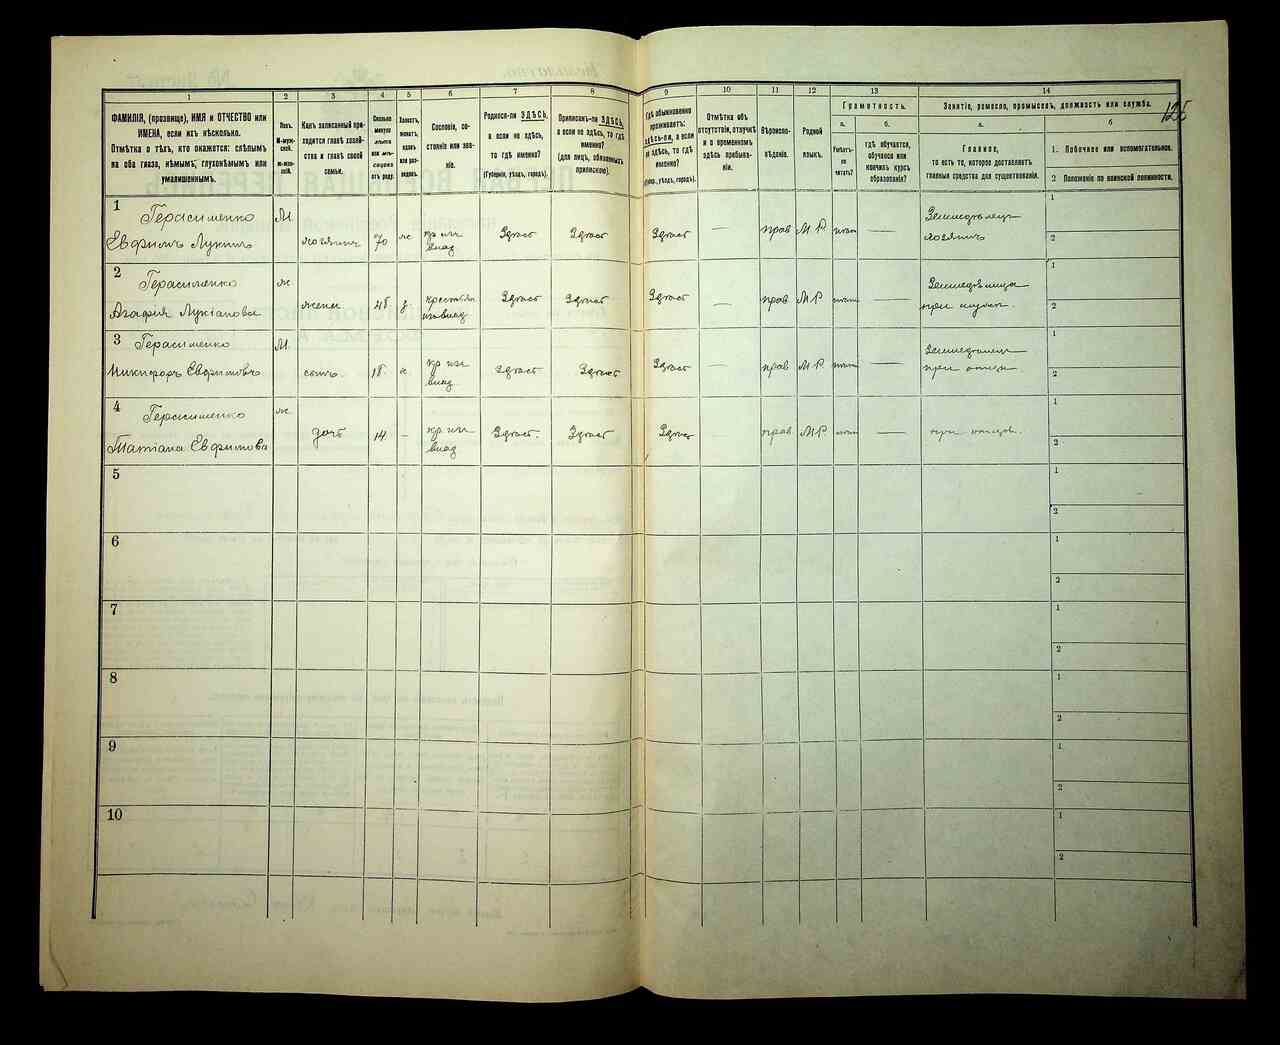 125
1
2
3
4
5
6
7
8
9
10
11
12
13
14
ФАМИЛІЯ, (прозвище), ИМЯ и ОТЧЕСТВО или
ИМЕНА, если ихъ нѣсколько.
Отмѣтка о тѣхъ, кто окажется: слѣпымъ
на оба глаза, нѣмымъ, глухонѣмымъ или
умалишеннымъ.
Полъ.
М-муж-
ской.
ж-жен-
скій.
Какъ записанный при-
ходится главѣ хозяй-
ства и главѣ своей
семьи.
Сколько
минуло
лѣтъ
или мѣ-
сяцевъ
отъ роду.
Холостъ,
женатъ,
вдовъ
или раз-
веденъ.
Сословіе, со-
стояніе или зва-
ніе.
Родился-ли ЗДѢСЬ,
а если не здѣсь,
то гдѣ именно?
(Губернія, уѣздъ, городъ).
Приписанъ-ли ЗДѢСЬ,
а если не здѣсь, то гдѣ
именно?
(для лицъ, обязанныхъ
припискою).
Гдѣ обыкновенно
проживаетъ:
здѣсь-ли, а если
не здѣсь, то гдѣ
именно?
(Губер., уѣздъ, городъ).
Отмѣтка объ
отсутствіи, отлучкѣ
и о временномъ
здѣсь пребыва-
ніи.
Вѣроиспо-
вѣданіе.
Родной
языкъ.
Грамотность.
а.
Умѣетъ-
ли
читать?
б.
гдѣ обучается,
обучался или
кончилъ курсъ
образованія?
Занятіе, ремесло, промыселъ, должность или служба.
а.
Главное,
то есть то, которое доставляетъ
главныя средства для существованія.
б
1. Побочное или вспомогательное.
2 Положеніе по воинской повинности.
1
Герасименко
Евфимъ Лукинъ
М
хозяинъ
70
ж
кр
Здѣсь
Здѣсь
Здѣсь
—
прав
М Р
—
Земледѣлецъ
хозяинъ
1
2
2
Герасименко
Агафія Лукіанова
ж
жена
Здѣсь
Здѣсь
Здѣсь
—
прав
М Р
—
при
1
2
3
Герасименко
Никифоръ Евфимовъ
М
сынъ
18
кр
Здѣсь
Здѣсь
Здѣсь
—
прав
М Р
—
Земледѣлецъ
при отцѣ
1
2
4
Герасименко
Татіана Евфимова
ж
дочь
14
–
кр
Здѣсь
Здѣсь
Здѣсь
—
прав
М Р
—
при отцѣ
1
2
5
1
2
6
1
2
7
1
2
8
1
2
9
1
2
10
1
2